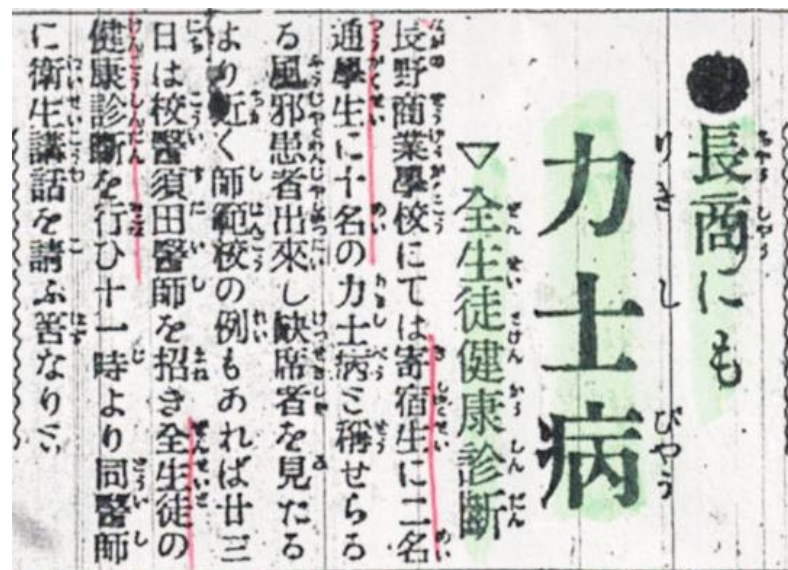 ●長商にも
力士病
▽全生徒健康診斷
長野商業學校にては寄宿生に二名
通學生に十名の力士病と稱せらる
る風邪患者出來し缺席者を見たる
より近く師範校の例もあれば廿三
日は校醫須田醫師を招き全生徒の
健康診斷を行ひ十一時より同醫師
に衛生講話を請ふ筈なりと